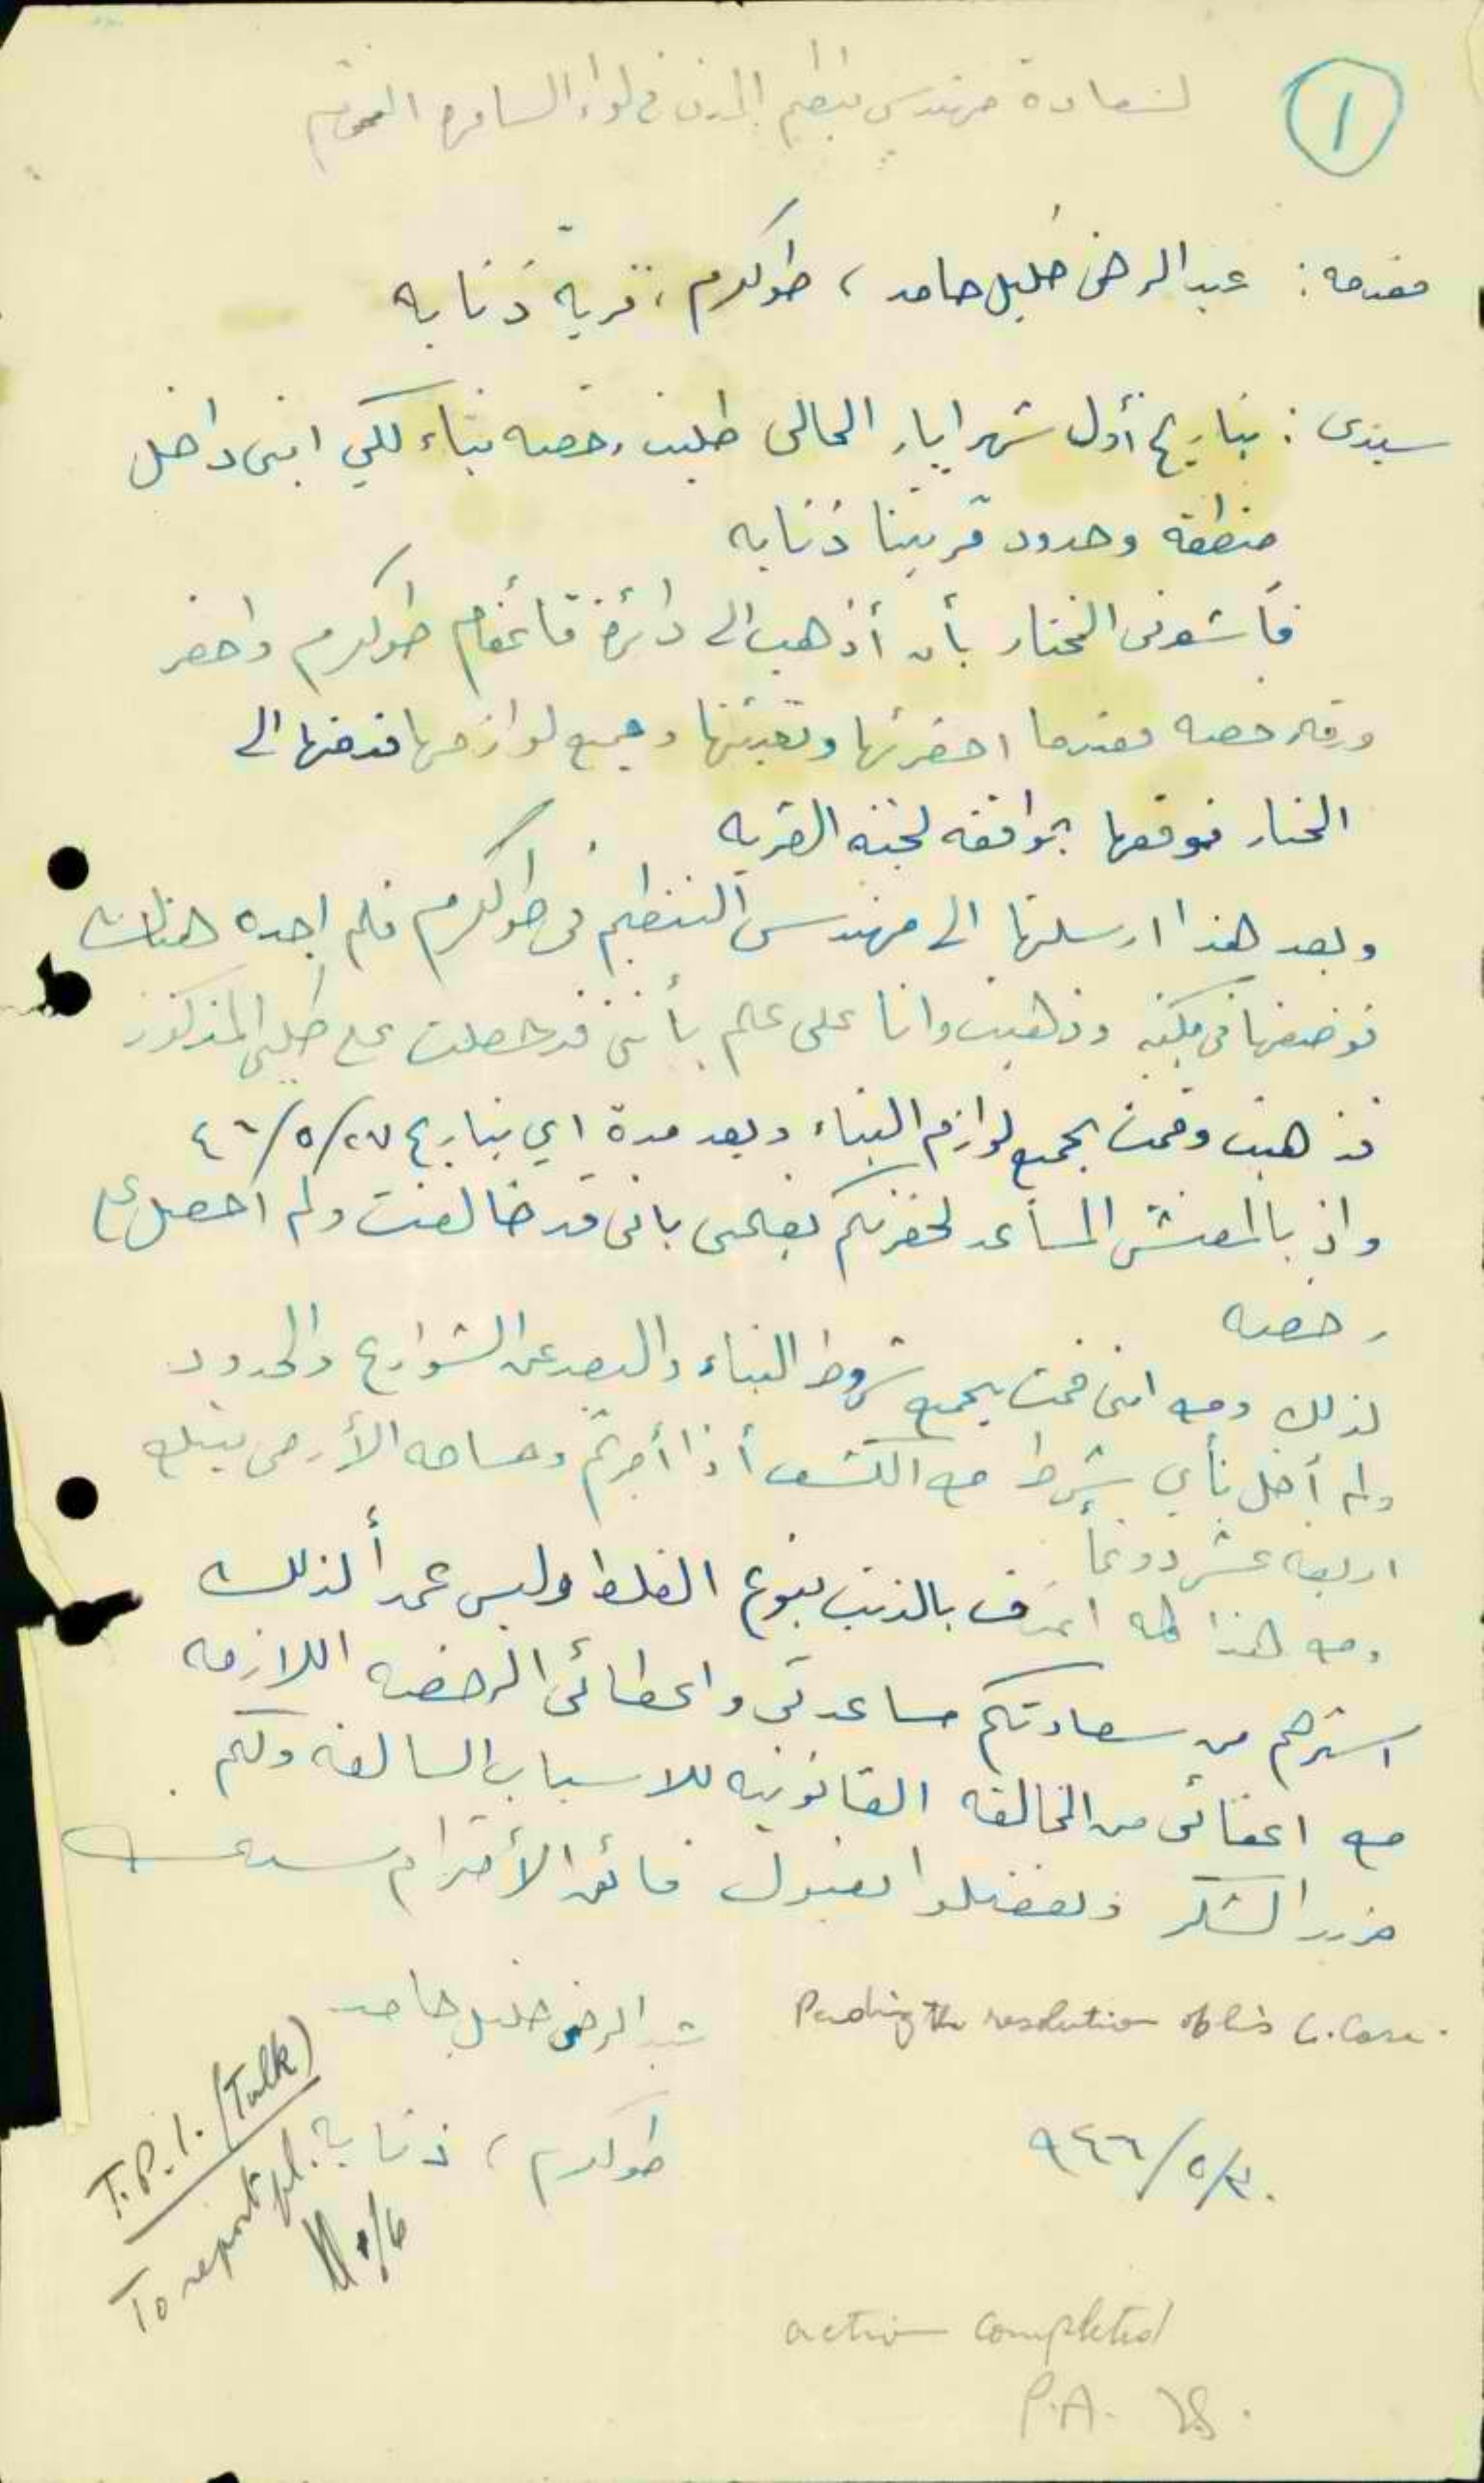 ١
لسعادة مهندس تنظيم المدن في لواء السامرة المحترم
مقدمه: عبد الرحمن خليل حامد، طولكرم، قرية ذنابه
سيدى: بتاريخ أول شهر ايار الحالى طلبت رخصه بناء لكي ابنى داخل
منطقة وحدود قريتنا ذنابه
فأشعرنى المختار بأن أذهب الى دائرة قائمقام طولكرم واحضر
ورقه رخصه فعندما احضرتها وتعبئتها وجميع لوازمها قدمتها الى
المختار فوقعها بموافقة لجنة القريه
وبعد هذا ارسلتها الى مهندس التنظيم فى طولكرم فلم اجده هناك
فوضعتها فى مكتبه وذهبت وانا على علم بأننى قد حصلت على طلبى المذكور
فذهبت وقمت بجميع لوازم البناء وبعد مدة اي بتاريخ ٤٦/٥/٢٧
واذ بالمفتش المساعد لحضرتكم يعلمنى بانى قد خالفت ولم احصل على
رخصه
لذلك ومع اننى قمت بجميع شروط البناء والبعد عن الشوارع والحدود
ولم أخل بأي شرط مع الكشف أذا أمرتم ومساحه الأرض تبلغ
اربعة عشر دونماً
ومع هذا كله اعترف بالذنب بنوع الغلط وليس عمداً لذلك
استرحم من سعادتكم مساعدتى واعطائى الرخصه اللازمه
مع اعفائى من المخالفه القانونيه للاسباب السالفه ولكم
مزيد الشكر وتفضلوا بقبول فائق الأحترام سيدى
عبد الرحمن خليل حامد
Pending the resolution of his C. Case.
طولكرم، ذنابة
٩٤٦/٥/٣٠
T.P.I. (Tulk)
To report pl.
/6
action completed
P.A.